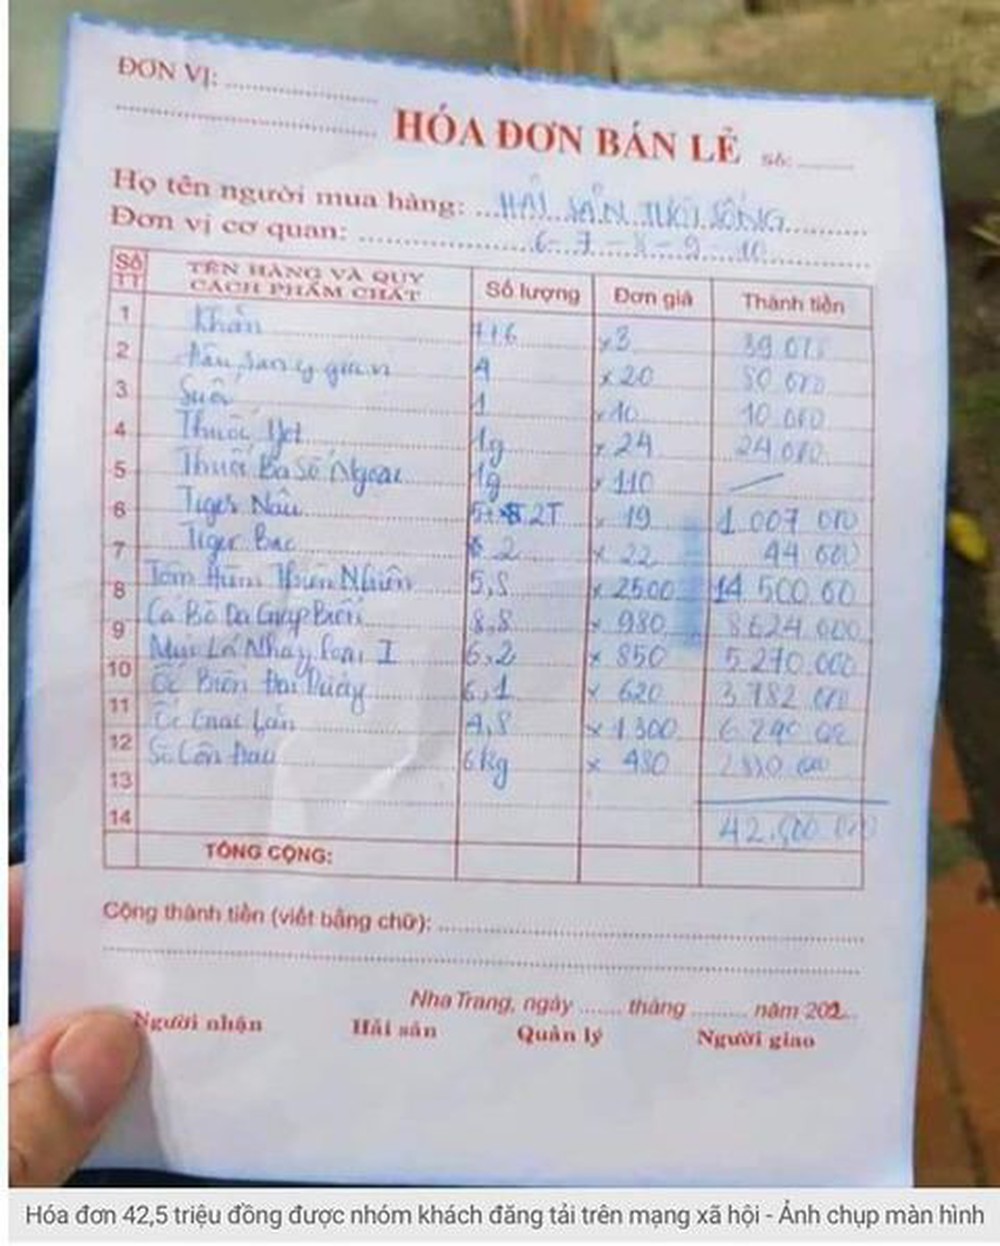 ĐƠN VỊ:
HÓA ĐƠN BÁN LẺ Số:
Họ tên người mua hàng: HẢI SẢN TƯƠI SỐNG
Đơn vị cơ quan: 6-7-8-9-10
Số TT TÊN HÀNG VÀ QUY CÁCH PHẨM CHẤT Số lượng Đơn giá Thành tiền
1 Khăn 7+6 x3 39.000
2 4 x20 80.000
3 Suối 1 x10 10.000
4 Thuốc Jet 1g x 24 24.000
5 Thuốc Ba Số Ngoại 1g x 110
6 Tiger Nâu 2T x 19 1.007 000
7 Tiger Bạc 2 x 22 44 000
8 Tôm Hùm Thiên Nhiên 5,8 x 2500 14 500 00
9 Cá Bò Da Giáp Biển 8,8 x 980 8624 000
10 Mực Lá Nháy loại I 6,2 x 850 5.270.000
11 Ốc Biển Đại 6,1 x 620 3 782 000
12 Ốc Lớn 4,8 x 1300 6 240 00
13 Sò 6kg x 480 2880 000
14 42.500.000
TỔNG CỘNG:
Cộng thành tiền (viết bằng chữ):
Nha Trang, ngày ....... tháng ......... năm 202
Người nhận Hải sản Quản lý Người giao
Hóa đơn 42,5 triệu đồng được nhóm khách đăng tải trên mạng xã hội - Ảnh chụp màn hình